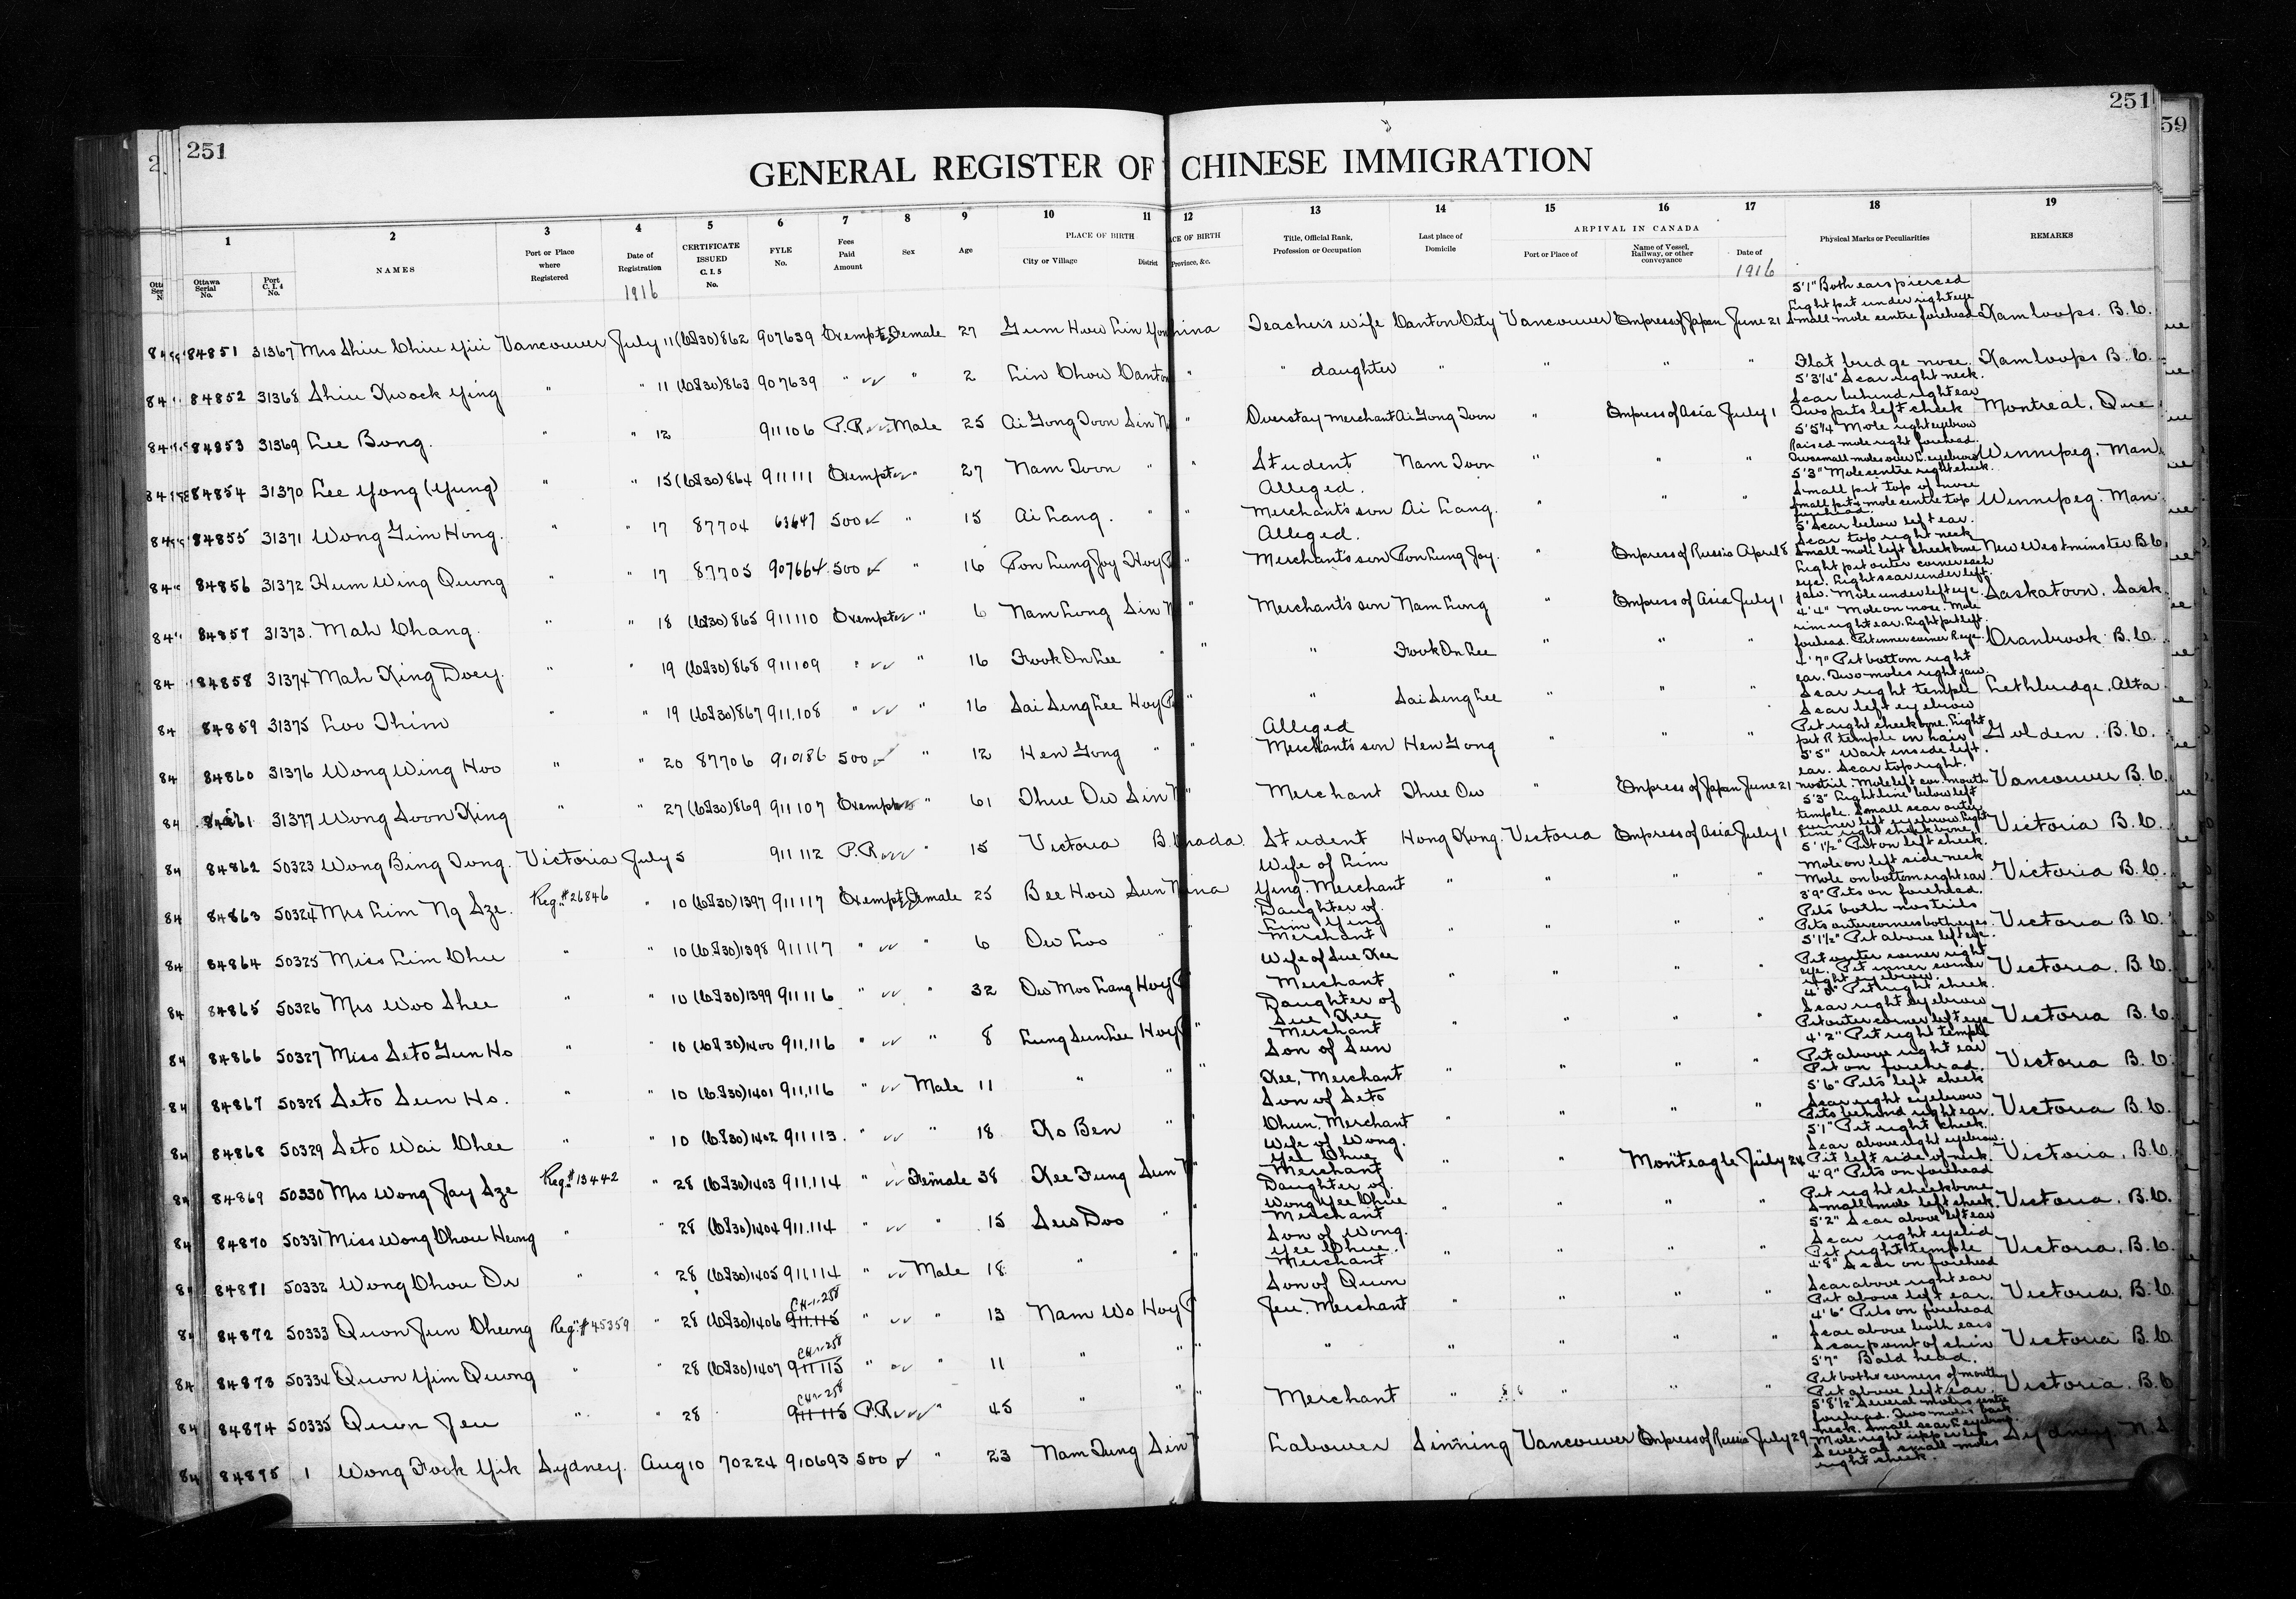 251
251
59
GENERAL REGISTER OF CHINESE IMMIGRATION
1 2 3 4 5 6 7 8 9 10 11 12 13 14 15 16 17 18 19
Ottawa Serial No. Port C.I.4 No. NAMES Port or Place where Registered Date of Registration CERTIFICATE ISSUED C.I.5 No. FYLE No. Fees Paid Amount Sex Age PLACE OF BIRTH City or Village District Province, &c. Title, Official Rank, Profession or Occupation Last place of Domicile ARRIVAL IN CANADA Port or Place of Name of Vessel, Railway, or other conveyance Date of Physical Marks or Peculiarities REMARKS
1916 1916
84851 31367 Mrs Shiu Chiu Yiu Vancouver July 11 (C.I.30) 862 907639 Exempt Female 27 Gum How Lin China Teacher's wife Canton City Vancouver Empress of Japan June 21 5'1" Both ears pierced Light pit under right eye Small mole centre forehead Kamloops. B.C.
84852 31368 Shiu Kwock Ying " " 11 (C.I.30) 863 907639 " " 2 Lin Chow Canton " " daughter " " " " Flat bridge nose. Kamloops B.C.
84853 31369 Lee Bong. " " 12 911106 P.R. Male 25 Ai Gong Toon Sin N " Overstay merchant Ai Gong Toon " Empress of Asia July 1 5'3¼" Scar right neck. Scar behind right ear Two pits left cheek Montreal, Que
84854 31370 Lee Yong (Yung) " " 15 (C.I.30) 864 911111 Exempt " 27 Nam Toon " " Student Nam Toon " " " 5'5¼" Mole right eyebrow Raised mole right forehead. Two small moles over L. eyebrow Winnipeg. Man
84855 31371 Wong Gim Hong. " " 17 87704 63647 500 " 15 Ai Lang. " " Alleged. Merchant's son Ai Lang. " " " 5'3" Mole centre right cheek. Small pit top of nose Small pit & mole centre top forehead. Winnipeg. Man.
84856 31372 Hum Wing Quong " " 17 87705 907664 500 " 16 Pon Lung Joy Hoy P Alleged. Merchant's son Pon Lung Joy. " Empress of Russia April 8 5' Scar below left ear. Scar top right neck Small mole left cheekbone New Westminster B.C.
84857 31373. Mah Chang. " " 18 (C.I.30) 865 911110 Exempt " 6 Nam Long Sin N " Merchant's son Nam Long " Empress of Asia July 1 Light pit outer corner each eye. Light scar under left jaw. Mole under left eye. Saskatoon. Sask.
84858 31374 Mah King Doey. " " 19 (C.I.30) 868 911109 " " 16 Fook On Lee " " " Fook On Lee " " " 4'4" Mole on nose. Mole rim right ear. Light pit left forehead. Pit inner corner R eye. Cranbrook B.C.
84859 31375 Loo Thim " " 19 (C.I.30) 867 911,108 " " 16 Sai Sing Lee Hoy P " " Sai Sing Lee " " " 4'7" Pit bottom right ear. Two moles right jaw. Scar right temple Lethbridge. Alta
84860 31376 Wong Wing Hoo " " 20 87706 910186 500 " 12 Hen Gong " Alleged Merchant's son Hen Gong " " " Scar left eyebrow Pit right cheekbone. Light pit R temple in hair Golden. B.C.
84861 31377 Wong Soon King " " 27 (C.I.30) 869 911107 Exempt " 61 Thue Ow Sin N " Merchant Thue Ow " Empress of Japan June 21 5'5" Wart inside left ear. Scar top right. nostril. Mole left cor. mouth Vancouver B.C.
84862 50323 Wong Bing Tong. Victoria July 5 911112 P.R. " 15 Victoria B.C. Canada. Student Hong Kong. Victoria Empress of Asia July 1 5'3" Light line below left temple. Small scar outer corner left eyebrow. Light line right cheekbone Victoria B.C.
84863 50324 Mrs Lim Ng Sze. Reg. # 26846 " 10 (C.I.30) 1397 911117 Exempt Female 25 Bee How Sun N China Wife of Lim Ying. Merchant " " " " 5'1½" Pit on left cheek. Mole on left side neck Mole on bottom right ear. Victoria B.C.
84864 50325 Miss Lim Chu " " 10 (C.I.30) 1398 911117 " " 6 Ow Loo " Daughter of Lim Ying Merchant " " " " 3'9" Pits on forehead. Pits both nostrils Pits outer corners both eyes. Victoria B.C.
84865 50326 Mrs Woo Shee " " 10 (C.I.30) 1399 911116 " " 32 Ow Moo Lang Hoy P Wife of Sue Kee Merchant " " " " 5'1½" Pit above left eye. Pit outer corner right eye. Pit inner corner right eyebrow. Victoria. B.C.
84866 50327 Miss Seto Gun Ho " " 10 (C.I.30) 1400 911,116 " " 8 Lung Sun Lee Hoy P " Daughter of Sue Kee Merchant " " " " Pit right cheek. Scar right eyebrow Pit outer corner left eye Victoria B.C.
84867 50328 Seto Sun Ho. " " 10 (C.I.30) 1401 911,116 " Male 11 " " " Son of Sun Kee, Merchant " " " " 4'2" Pit right temple Pit above right ear Pit on forehead. Victoria B.C.
84868 50329 Seto Wai Chee " " 10 (C.I.30) 1402 911113. " " 18 Ko Ben " " Son of Seto Chun, Merchant " " " " 5'6" Pits left cheek Scar right eyebrow Pits behind right ear. Victoria B.C.
84869 50330 Mrs Wong Jay Sze Reg. # 13442 " 28 (C.I.30) 1403 911,114 " Female 38 Kee Fung Sun N Wife of Wong. Yee Chue Merchant " " Monteagle July 24 5'1" Pit right cheek. Scar above right eyebrow. Pit left side of neck. Victoria, B.C.
84870 50331 Miss Wong Chou Heong " " 28 (C.I.30) 1404 911.114 " " 15 Sew Doo " " Daughter of. Wong Yee Chue Merchant " " " " 4'9" Pits on forehead Pit right cheekbone Small mole left cheek. Victoria. B.C.
84871 50332 Wong Chou On " " 28 (C.I.30) 1405 911,114 " Male 18 " " " Son of Wong. Yee Chue. Merchant " " " " 5'2" Scar above left ear Scar right eyelid Pit right temple Victoria. B.C.
84872 50333 Quon Jun Cheong Reg. # 45359 " 28 (C.I.30) 1406 911,115 CH-1-258 " " 13 Nam Wo Hoy P Son of Quon Jeu. Merchant " " " " 4'8" Scar on forehead Scar above right ear Pit above left ear. Victoria. B.C.
84873 50334 Quon Yim Quong " " 28 (C.I.30) 1407 911115 CH-1-258 " " 11 " " " " " " " " 4'6" Pits on forehead Scar above both ears Scar point of chin Victoria B.C.
84874 50335 Quon Jeu " " 28 911115 CH-1-258 P.R. " 45 " " " Merchant " " " " 5'7" Bald head. Pit both corners of mouth Pit above left ear. Victoria. B.C.
84875 1 Wong Fook Yik Sydney. Aug 10 70224 910693 500 " 23 Nam Tung Sin N Labourer Sinning Vancouver Empress of Russia July 29 5'8½" Several moles centre forehead. Two moles back neck. Small scar L eyebrow. Mole right upper lip Several small moles right cheek. Sydney. N.S